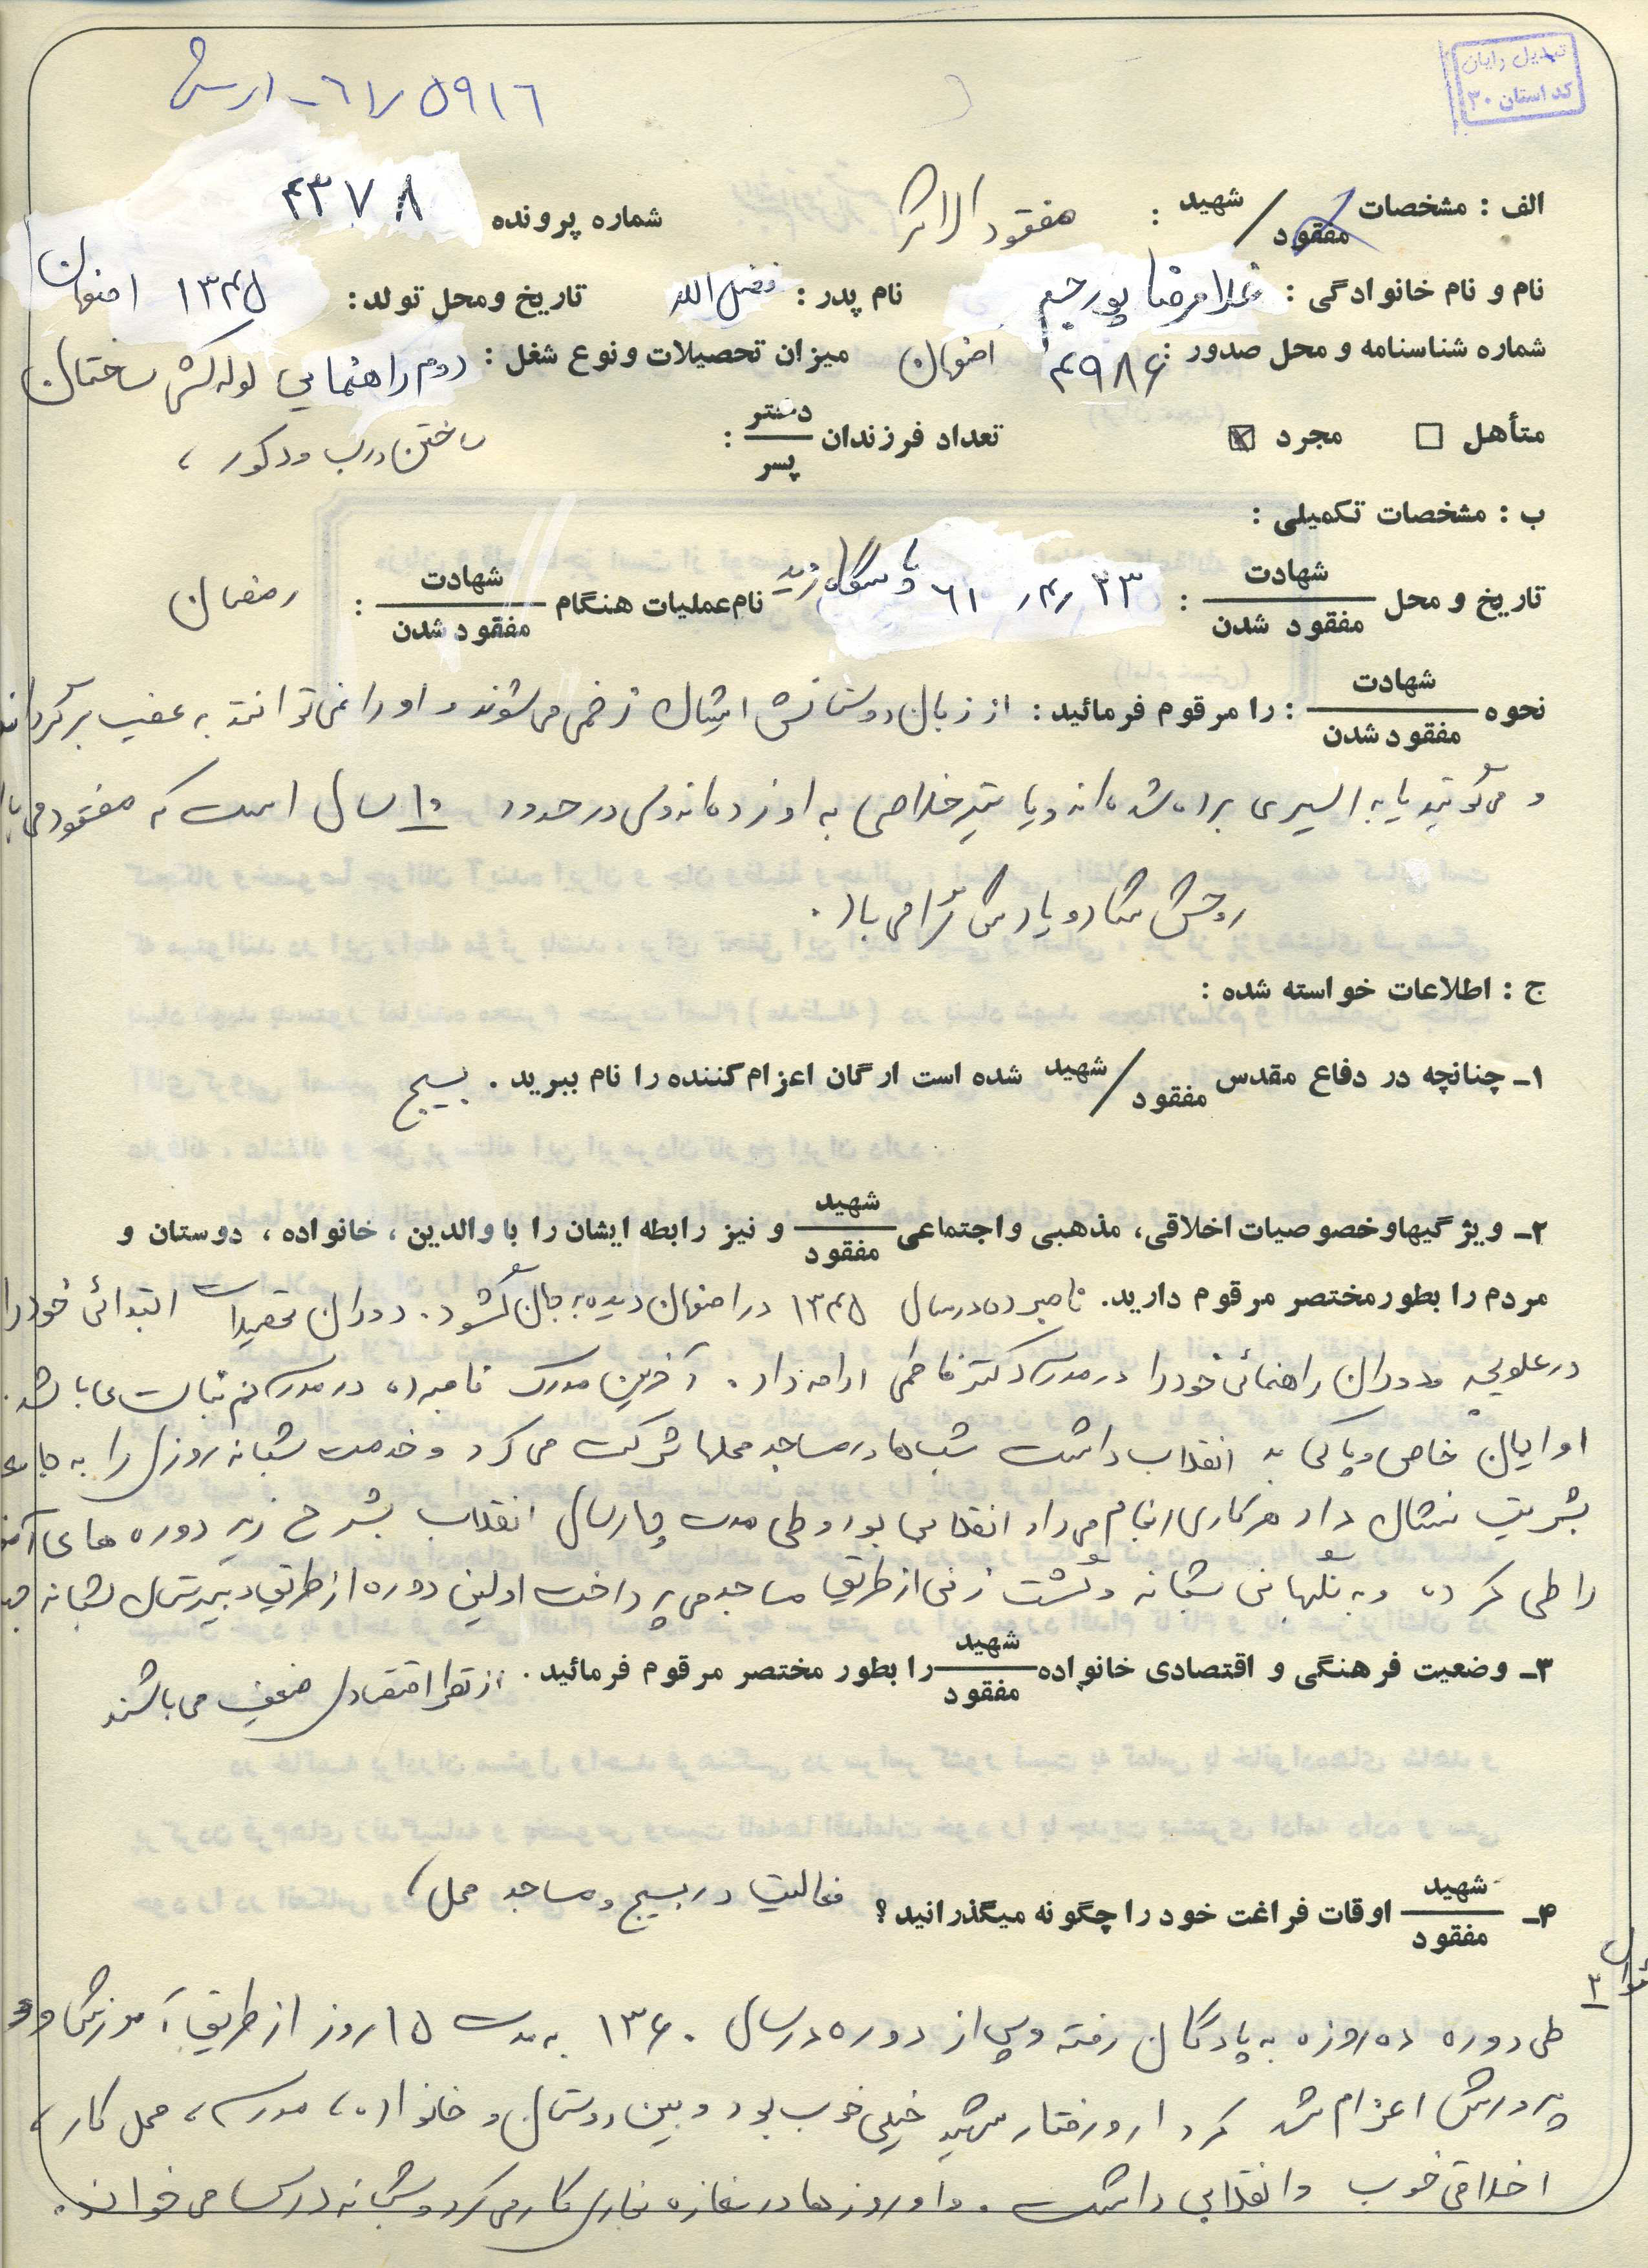 تبدیل رایان
کد استان ۳۰
۶۱/۵۹۱۶ - ارسش
الف : مشخصات شهید / مفقود : مفقود الاثر شماره پرونده ۴۳۷۸
نام و نام خانوادگی : غلامرضا پور رحیم نام پدر : فضل الله تاریخ ومحل تولد : ۱۳۴۵ اصفهان
شماره شناسنامه و محل صدور : ۴۹۸۶ اصفهان میزان تحصیلات ونوع شغل : دوم راهنمایی لوله کش ساختمان
متأهل مجرد تعداد فرزندان دختر پسر : ساختن درب ودکور ،
ب : مشخصات تکمیلی :
تاریخ و محل شهادت مفقود شدن : ۶۱/۴/۲۳ پاسگاه زید نام عملیات هنگام شهادت مفقود شدن : رمضان
نحوه شهادت مفقود شدن : را مرقوم فرمائید : از زبان دوستانش ایشان زخمی می شوند و او را نمی توانند به عقب برگردانند
و می گویند یا به اسیری برده شده اند و یا تیر خلاصی به او زده اند ولی در حدود ۱۰ سال است که مفقود می با
روحش شاد و یادش گرامی باد .
ج : اطلاعات خواسته شده :
۱ـ چنانچه در دفاع مقدس شهید / مفقود شده است ارگان اعزام کننده را نام ببرید . بسیج
۲ـ ویژگیهاوخصوصیات اخلاقی، مذهبی واجتماعی شهید مفقود و نیز رابطه ایشان را با والدین ، خانواده ، دوستان و
مردم را بطور مختصر مرقوم دارید. نامبرده در سال ۱۳۴۵ در اصفهان دیده به جهان گشود . دوران تحصیلات ابتدائی خود را
در علویجه و دوران راهنمائی خود را در مدرسه دکتر فاطمی ادامه داد . آخرین مدرک نامبرده در مدرسه می باشد .
او ایمان خاص و پاکی به انقلاب داشت شب ها در مساجد محلها شرکت می کرد و خدمت شبانه روزی را به جامعه
بشریت نشان داد هر کاری انجام می داد انقلابی بود و طی مدت چهار سال انقلاب بشرح زیر دوره های
را طی کرده و به نگهبانی شبانه و گشت زنی از طریق مساجد می پرداخت اولین دوره از طریق دبیرستان شبانه
۳ـ وضعیت فرهنگی و اقتصادی خانواده شهید مفقود را بطور مختصر مرقوم فرمائید . از نظر اقتصادی ضعیف می باشند
۴ـ شهید مفقود اوقات فراغت خود را چگونه میگذرانید ؟ فعالیت در بسیج و مساجد محل ،
سوال ۲
طی دوره ده روزه به پادگان رفته و پس از دوره در سال ۱۳۶۰ به مدت ۱۵ روز از طریق آموزش و
پرورش اعزام شد کردار و رفتار شهید خیلی خوب بود و بین دوستان و خانواده ، مدرسه ، محل کار ،
اخلاقی خوب و انقلابی داشت . و او روزها در مغازه نجاری کار می کرد و شبانه درس می خواند .